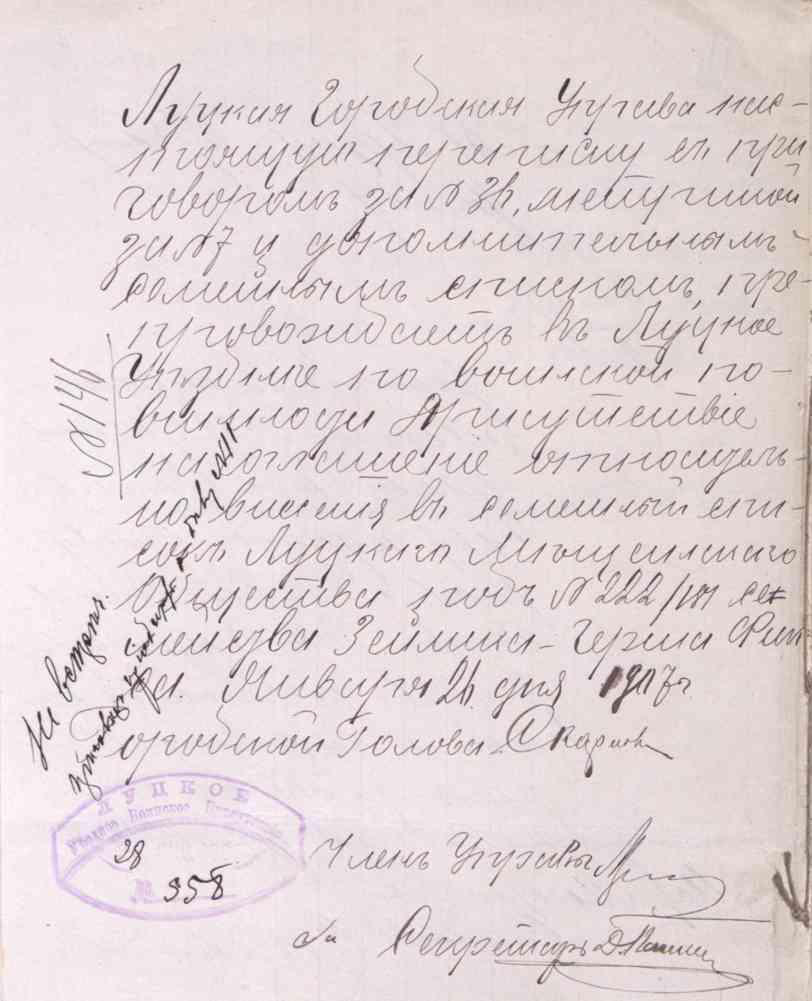 Луцкая Городская Управа нас-
тоящую переписку съ при
говоромъ за № 36, метрикой
за № 7 и дополнительнымъ
семейнымъ спискомъ, пре-
провождаетъ въ Луцкое
Уѣздное по воинской по-
винности Присутствіе
на соглашеніе относитель-
но внесенія въ семейный спи-
сокъ Луцкаго Мѣщанскаго
Общества подъ № 222/
семейства Зейлика-Герша
Января 26 дня 1907 г.
Городской Голова
Членъ Управы
За Секретаря
№ 146
Не встрѣч.
ЛУЦКОЕ
Уѣздное Воинское Присутствіе
28
№ 358